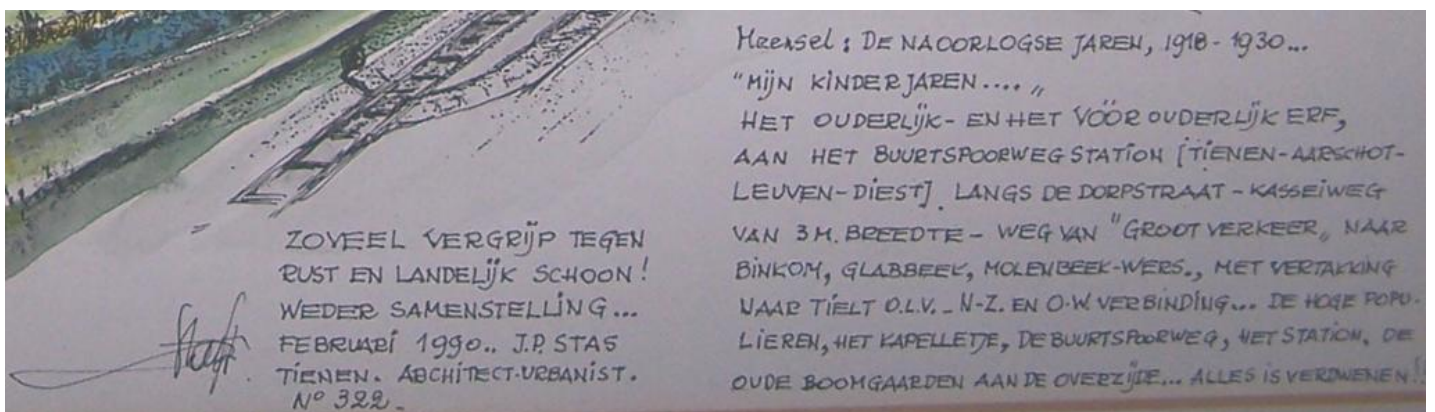 ZOVEEL VERGRIJP TEGEN
RUST EN LANDELIJK SCHOON!
WEDER SAMENSTELLING...
FEBRUARI 1990.. J.P. STAS
TIENEN. ARCHITECT-URBANIST.
No 322_
Meensel: DE NAOORLOGSE JAREN, 1918-1930...
"MIJN KINDERJAREN....„
HET OUDERLIJK- EN HET VÖÖR OUDERLIJK ERF,
AAN HET BUURTSPOORWEG STATION [TIENEN-AARSCHOT-
LEUVEN-DIEST]. LANGS DE DORPSTRAAT - KASSEIWEG
VAN 3M. BREEDTE - WEG VAN "GROOT VERKEER„ NAAR
BINKOM, GLABBEEK, MOLENBEEK-WERS., MET VERTAKKING
NAAR TIELT O.L.V. _ N-Z. EN O-W. VERBINDING... DE HOGE POPU-
LIEREN, HET KAPELLETJE, DE BUURTSPOORWEG, HET STATION, DE
OUDE BOOMGAARDEN AAN DE OVERZIJDE... ALLES IS VERDWENEN!!